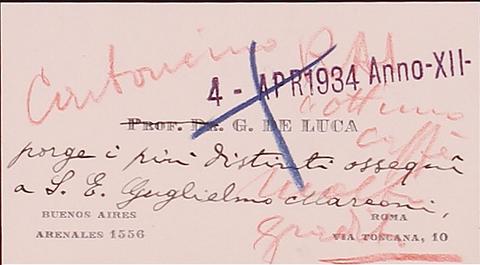 Cartoncino
4 - APR 1934 Anno-XII-
ottimo
caffè
PROF. DR. G. DE LUCA
porge i più distinti ossequi
a S. E. Guglielmo Marconi,
molto
BUENOS AIRES
ARENALES 1556
ROMA
VIA TOSCANA, 10